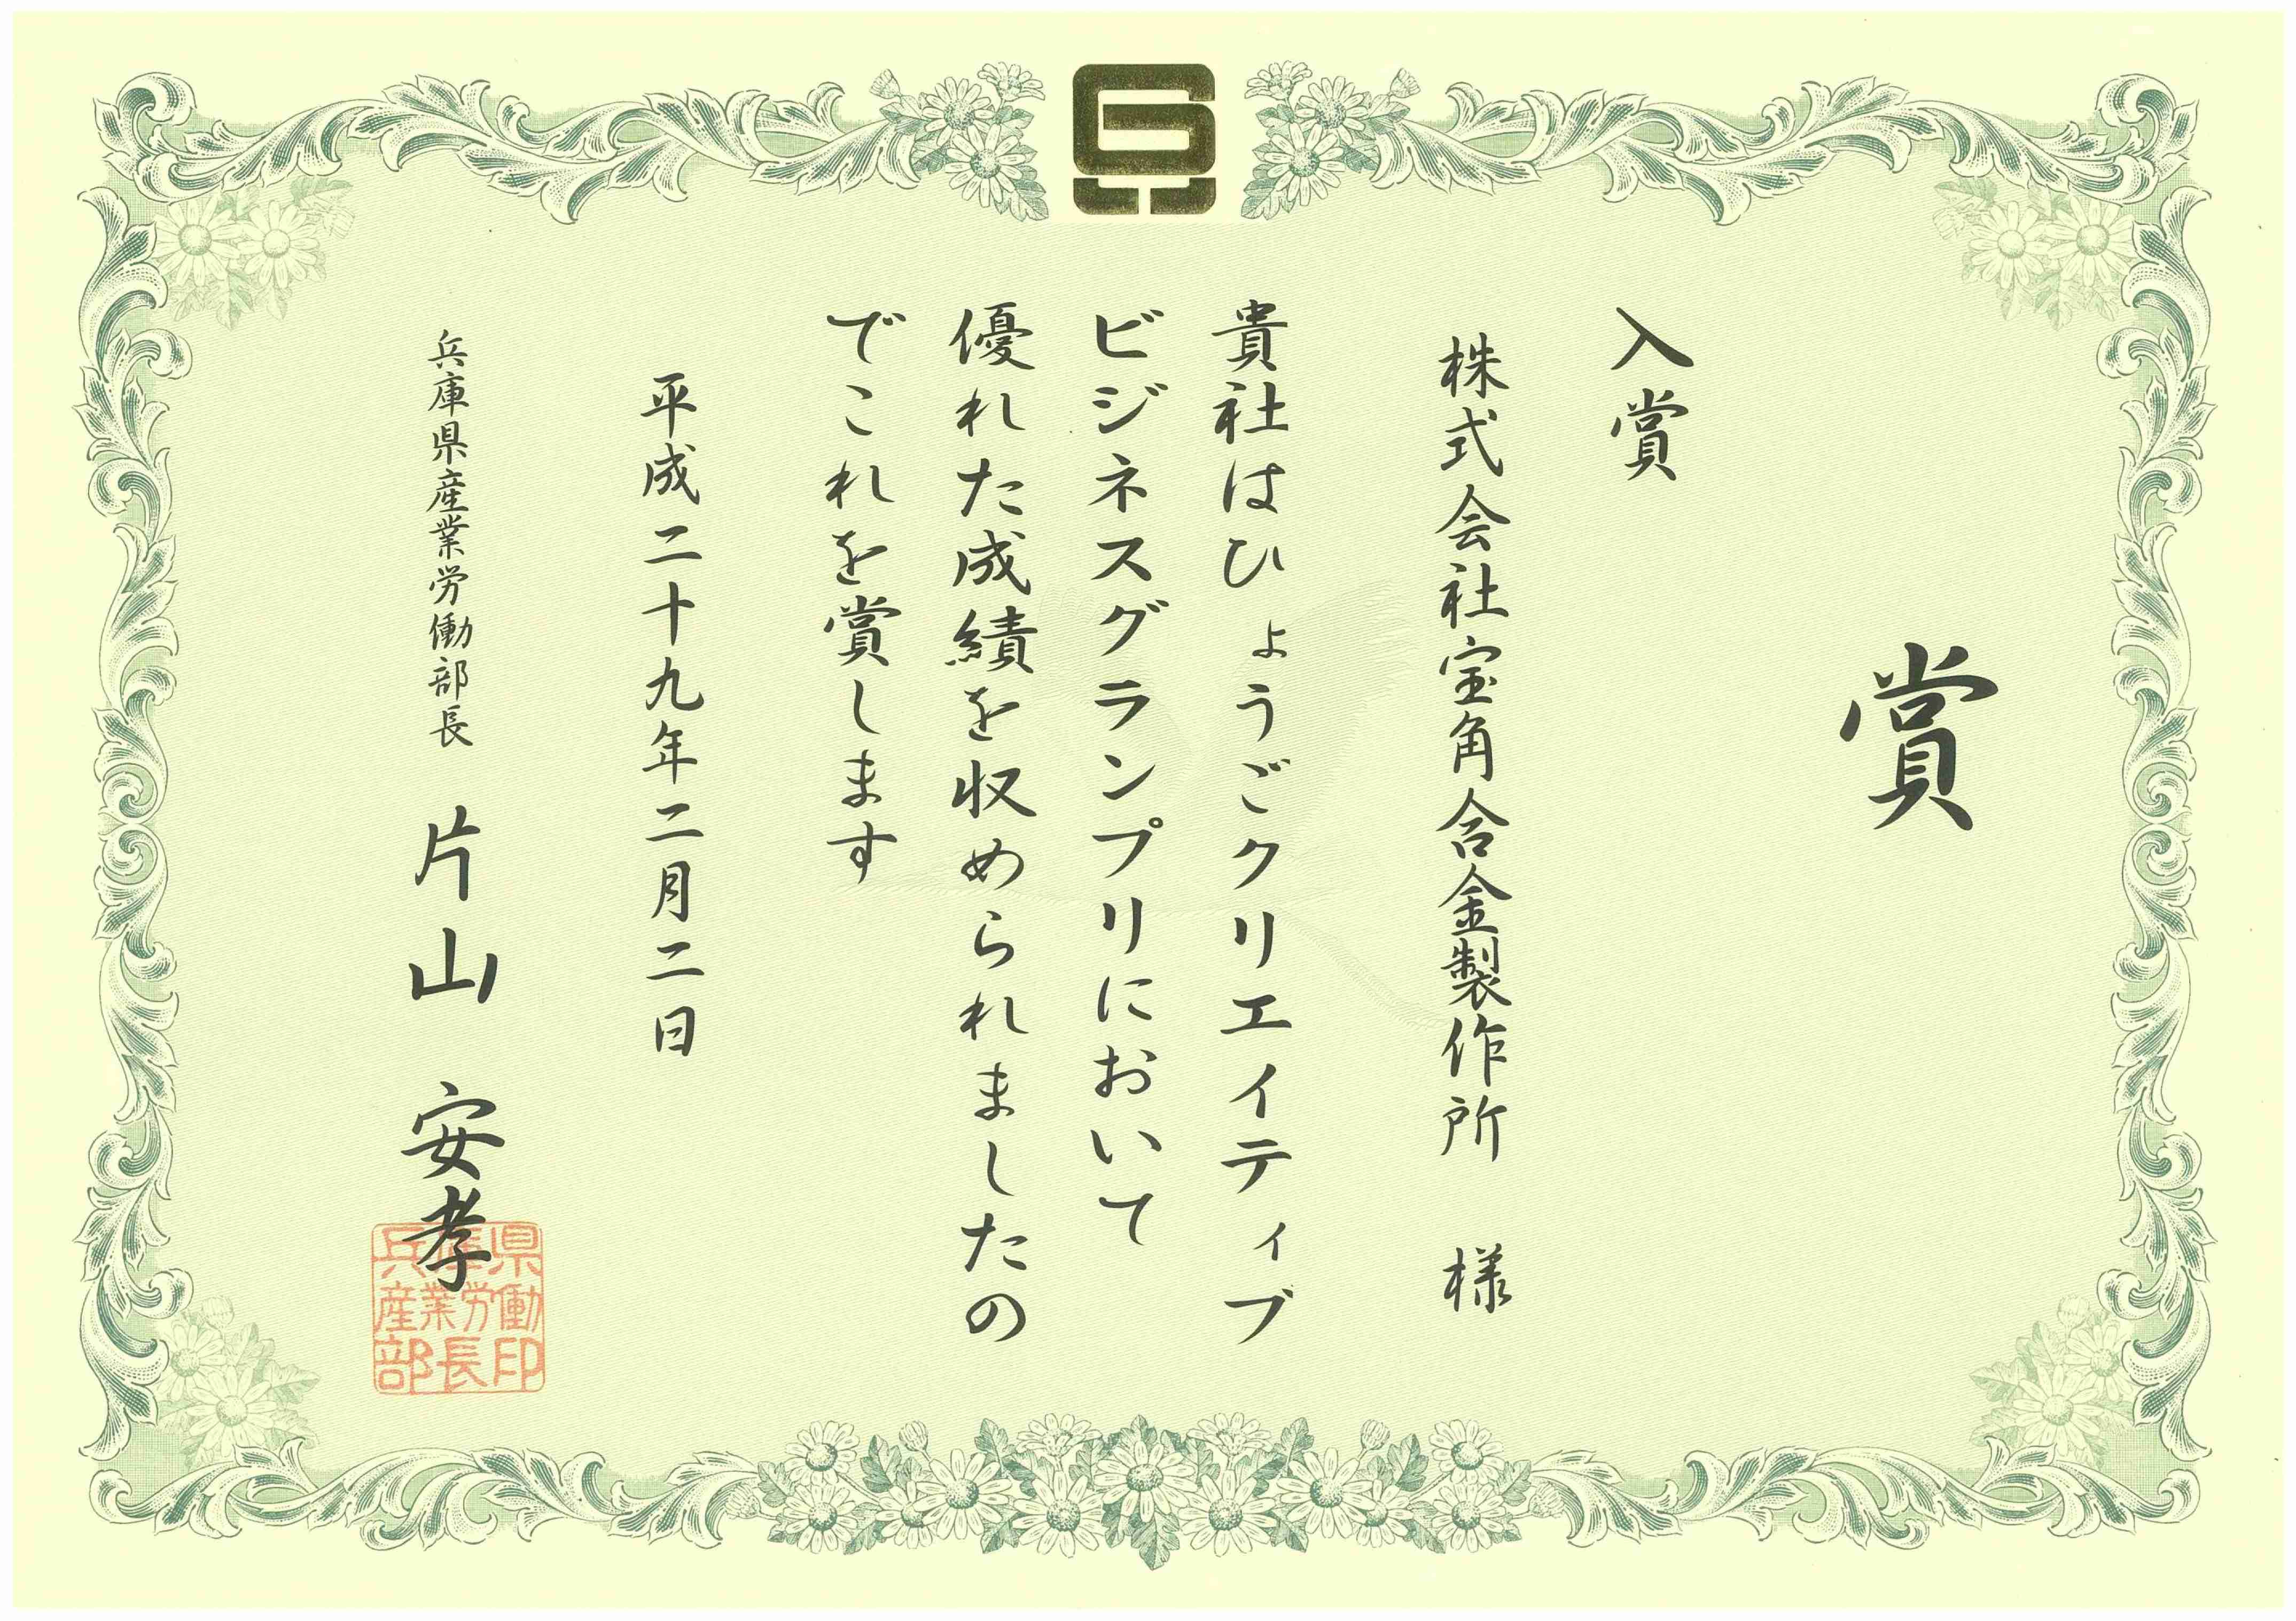 賞
入賞
株式会社宝角合金製作所 様
貴社はひょうごクリエイティブ
ビジネスグランプリにおいて
優れた成績を収められましたの
でこれを賞します
平成二十九年二月二日
兵庫県産業労働部長 片山 安孝
兵庫県
産業労働
部長印